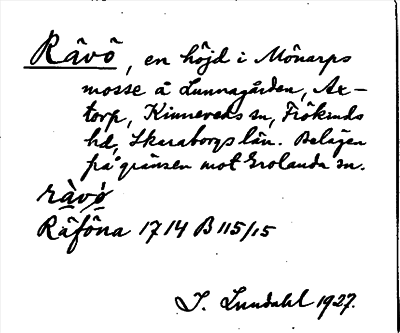 Råvö, en höjd i Mönarps
mosse å Lunnagården, Ax-
torp, Kinneveds sn, Frökinds
hd, Skaraborgs län. Belägen
på gränsen mot Grolanda sn.
ràvö́
Råföna 1714 B 115/15
I. Lundahl 1927.